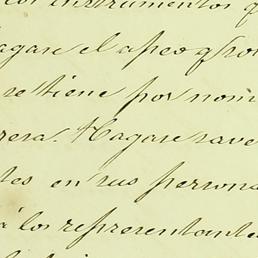 los instrumentos q
agase el apeo y
se tiene por nom
rera. Hagase save
tes en sus persona
á los representante